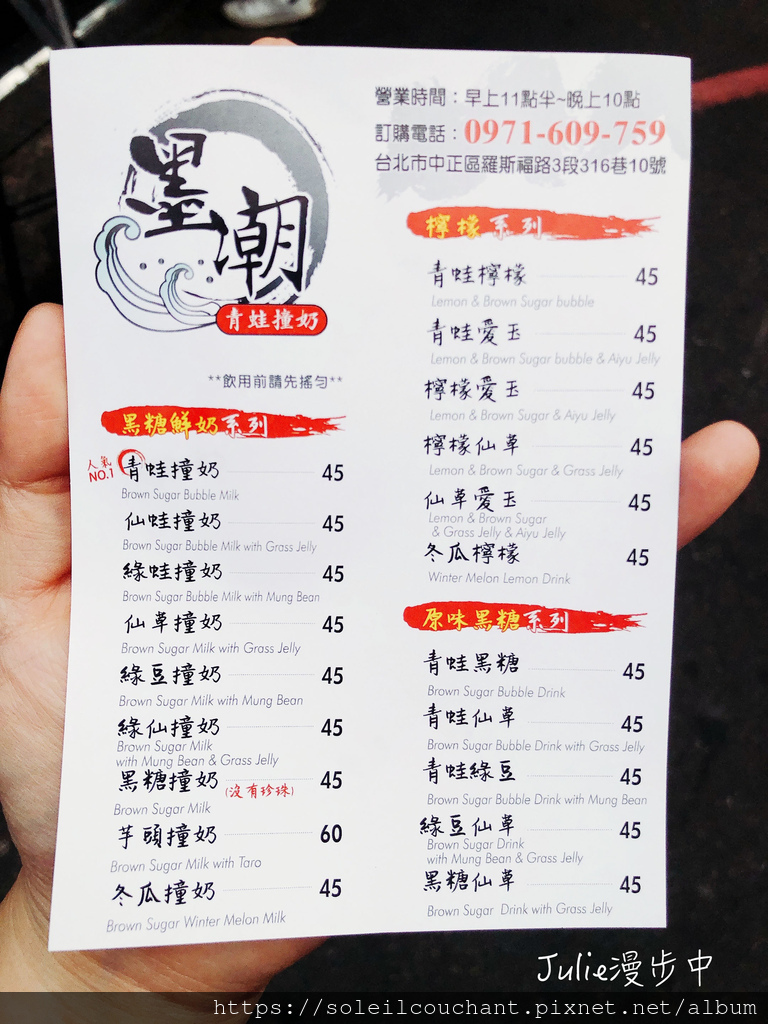 墨潮
青蛙撞奶
**飲用前請先搖勻**
黑糖鮮奶系列
人氣
NO.1
青蛙撞奶 45
Brown Sugar Bubble Milk
仙蛙撞奶 45
Brown Sugar Bubble Milk with Grass Jelly
綠蛙撞奶 45
Brown Sugar Bubble Milk with Mung Bean
仙草撞奶 45
Brown Sugar Milk with Grass Jelly
綠豆撞奶 45
Brown Sugar Milk with Mung Bean
綠仙撞奶 45
Brown Sugar Milk
with Mung Bean & Grass Jelly
黑糖撞奶 (沒有珍珠) 45
Brown Sugar Milk
芋頭撞奶 60
Brown Sugar Milk with Taro
冬瓜撞奶 45
Brown Sugar Winter Melon Milk
營業時間：早上11點半~晚上10點
訂購電話：0971-609-759
台北市中正區羅斯福路3段316巷10號
檸檬系列
青蛙檸檬 45
Lemon & Brown Sugar bubble
青蛙愛玉 45
Lemon & Brown Sugar bubble & Aiyu Jelly
檸檬愛玉 45
Lemon & Brown Sugar & Aiyu Jelly
檸檬仙草 45
Lemon & Brown Sugar & Grass Jelly
仙草愛玉 45
Lemon & Brown Sugar
& Grass Jelly & Aiyu Jelly
冬瓜檸檬 45
Winter Melon Lemon Drink
原味黑糖系列
青蛙黑糖 45
Brown Sugar Bubble Drink
青蛙仙草 45
Brown Sugar Bubble Drink with Grass Jelly
青蛙綠豆 45
Brown Sugar Bubble Drink with Mung Bean
綠豆仙草 45
Brown Sugar Drink
with Mung Bean & Grass Jelly
黑糖仙草 45
Brown Sugar Drink with Grass Jelly
Julie漫步中
https://soleilcouchant.pixnet.net/album